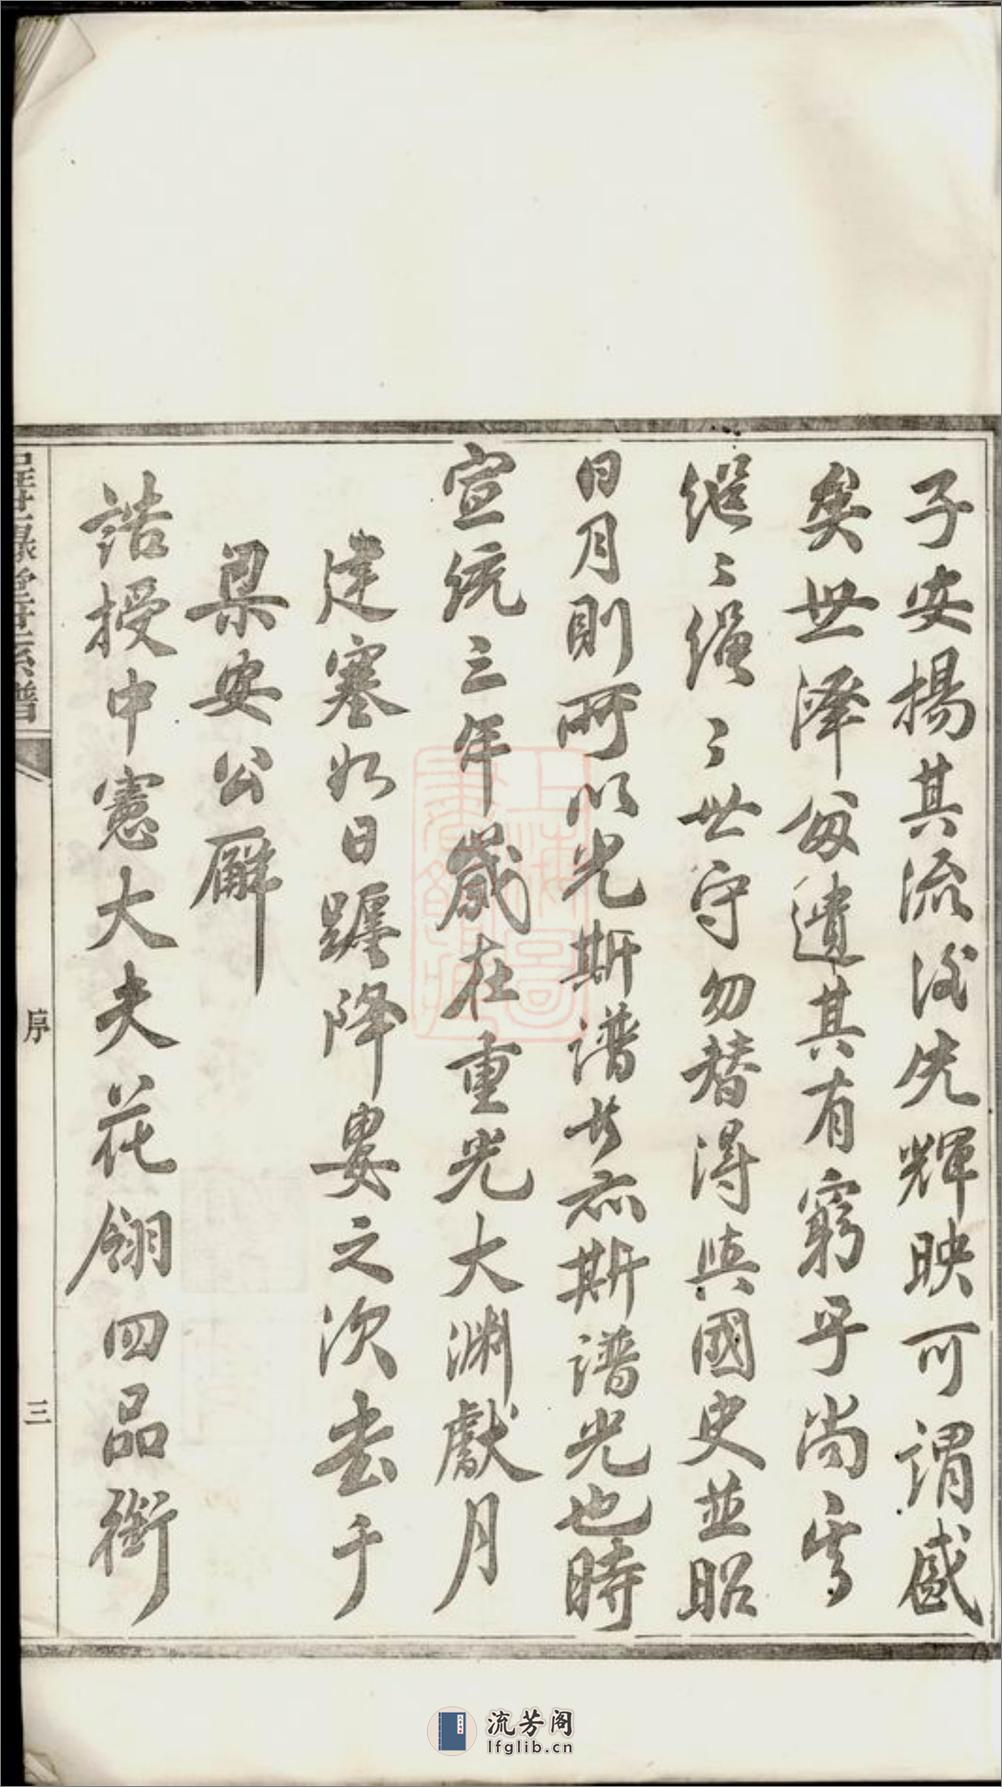 子安揚其流後先輝映可謂盛
矣世澤毋遺其有窮乎尚
繼〻繩〻世守勿替得與國史並昭
日月則所以光斯譜者亦斯譜光也時
宣統三年歲在重光大淵獻月
建寒如日躔降婁之次書于
梁安公廨
誥授中憲大夫花翎四品銜
世系譜
序
三
上海圖書館藏
流芳阁
lfglib.cn